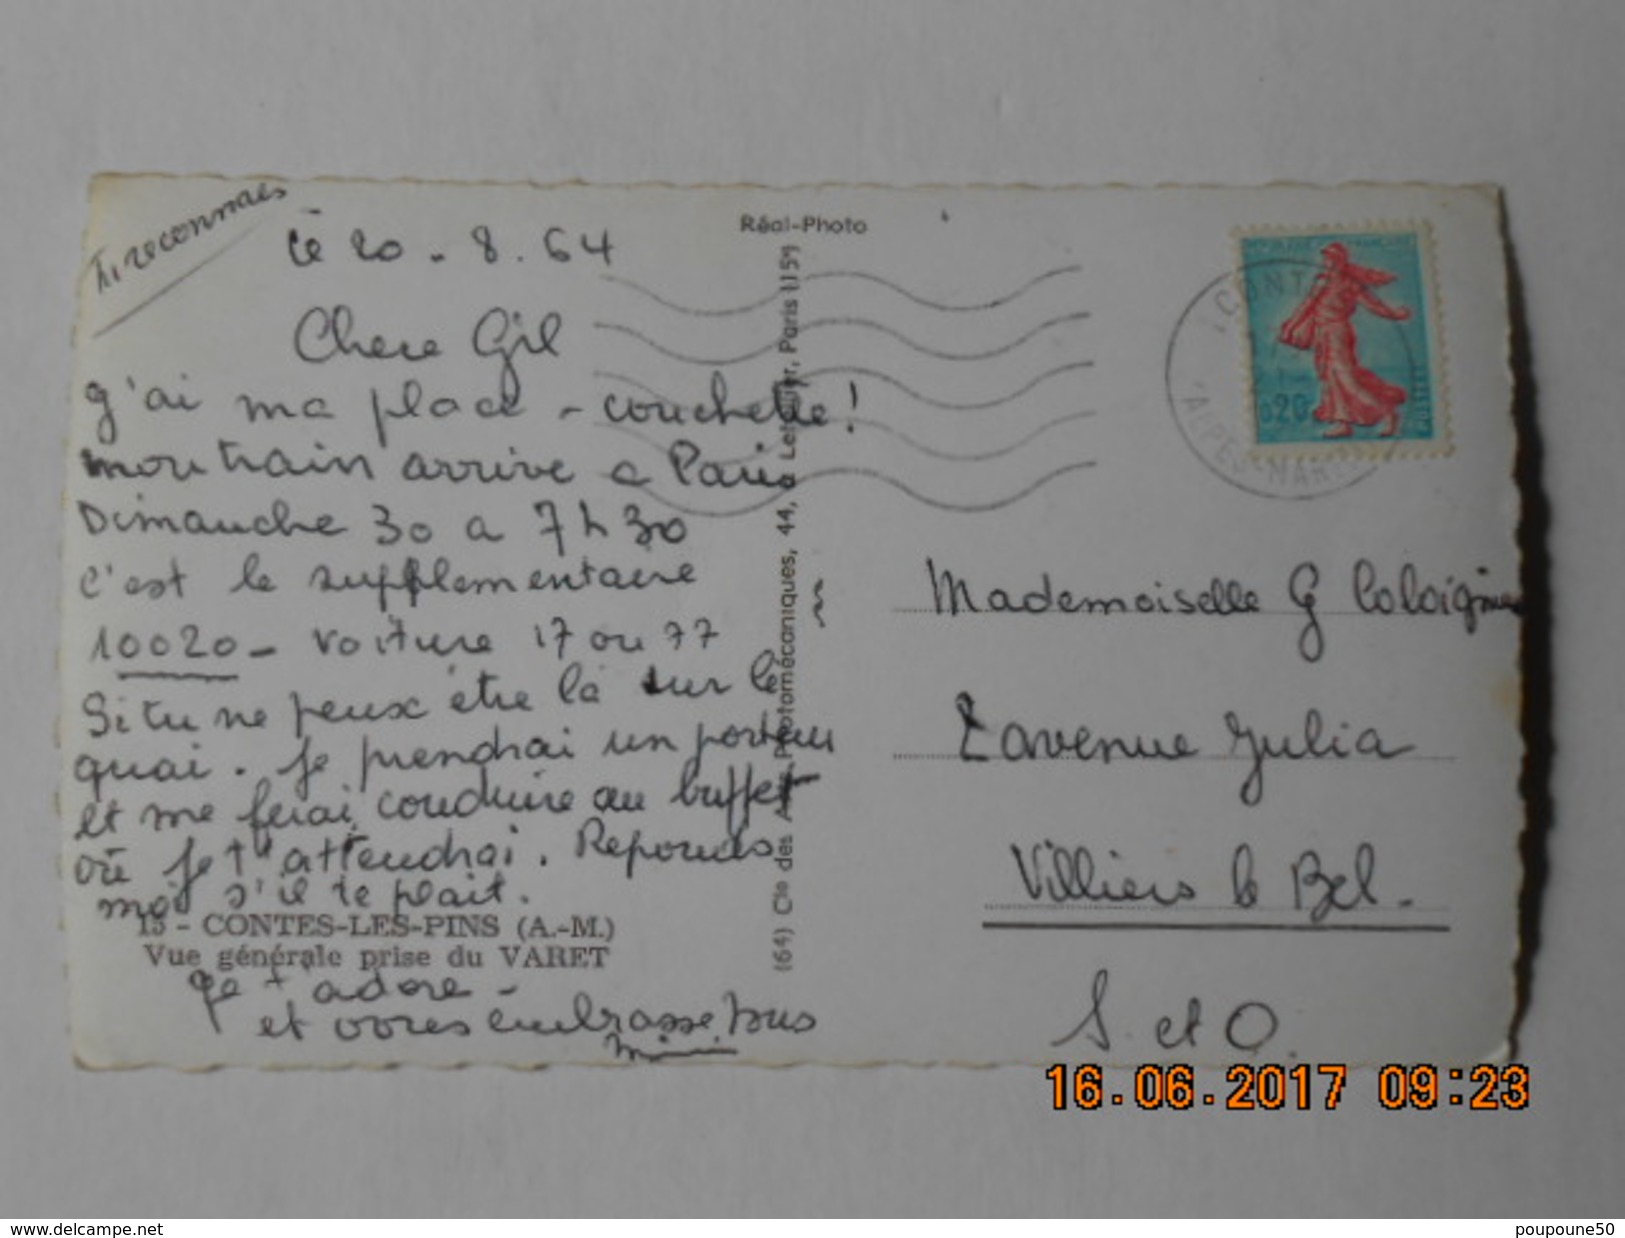 T. reconnais
Le 20 - 8. 64
Chere Gil
J'ai ma place - couchette !
mon train arrive a Paris
Dimanche 30 a 7h30
c'est le supplementaire
10020 - voiture 17 ou 77
Si tu ne peux être là sur le
quai. Je prendrai un porteur
et me ferai conduire au buffet
où je t'attendrai. Reponds
moi s'il te plait.
15 - CONTES-LES-PINS (A.-M.)
Vue générale prise du VARET
Je t'adore -
et vous embrasse tous
Mimi
Réal-Photo
(64) Cie des Arts Photomécaniques, 44, r. Letellier, Paris (15e)
CONTES
ALPES-MARITIMES
0,20
POSTES
Mademoiselle G
2 avenue Julia
Villiers le Bel.
S. et O.
16.06.2017 09:23
www.delcampe.net
poupoune50